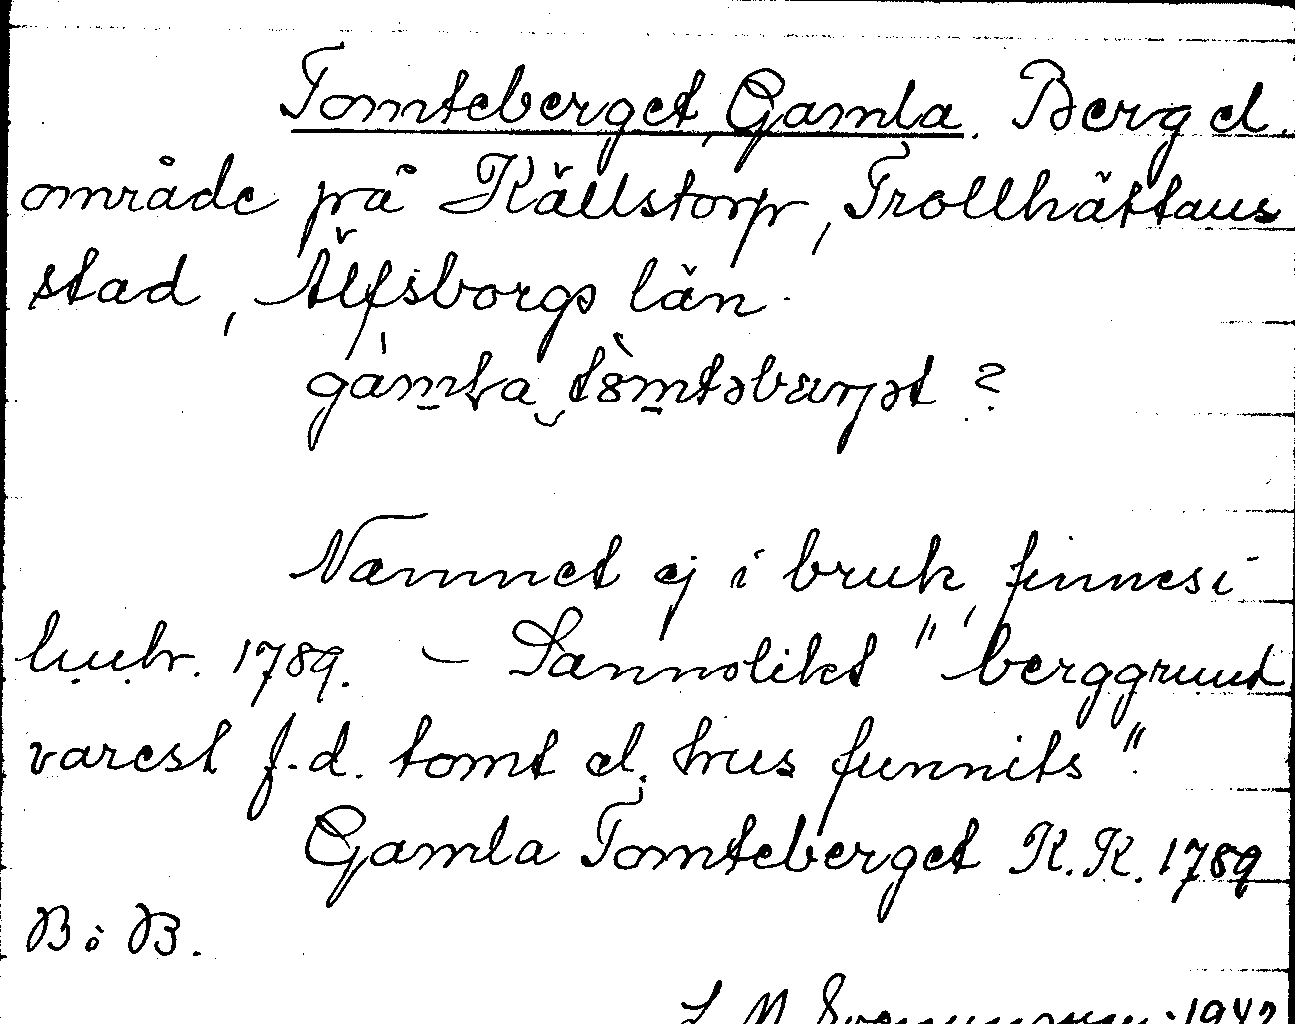 Tomteberget, Gamla. Berg el.
område på Källstorp, Trollhättans
stad, Älfsborgs län.
gàmḷa tòm̲təbærjət ?
Namnet ej i bruk, finnes i
1789. – Sannolikt "berggrund
varest f.d. tomt el. hus funnits".
Gamla Tomteberget K.K. 1789
B: B.
1942